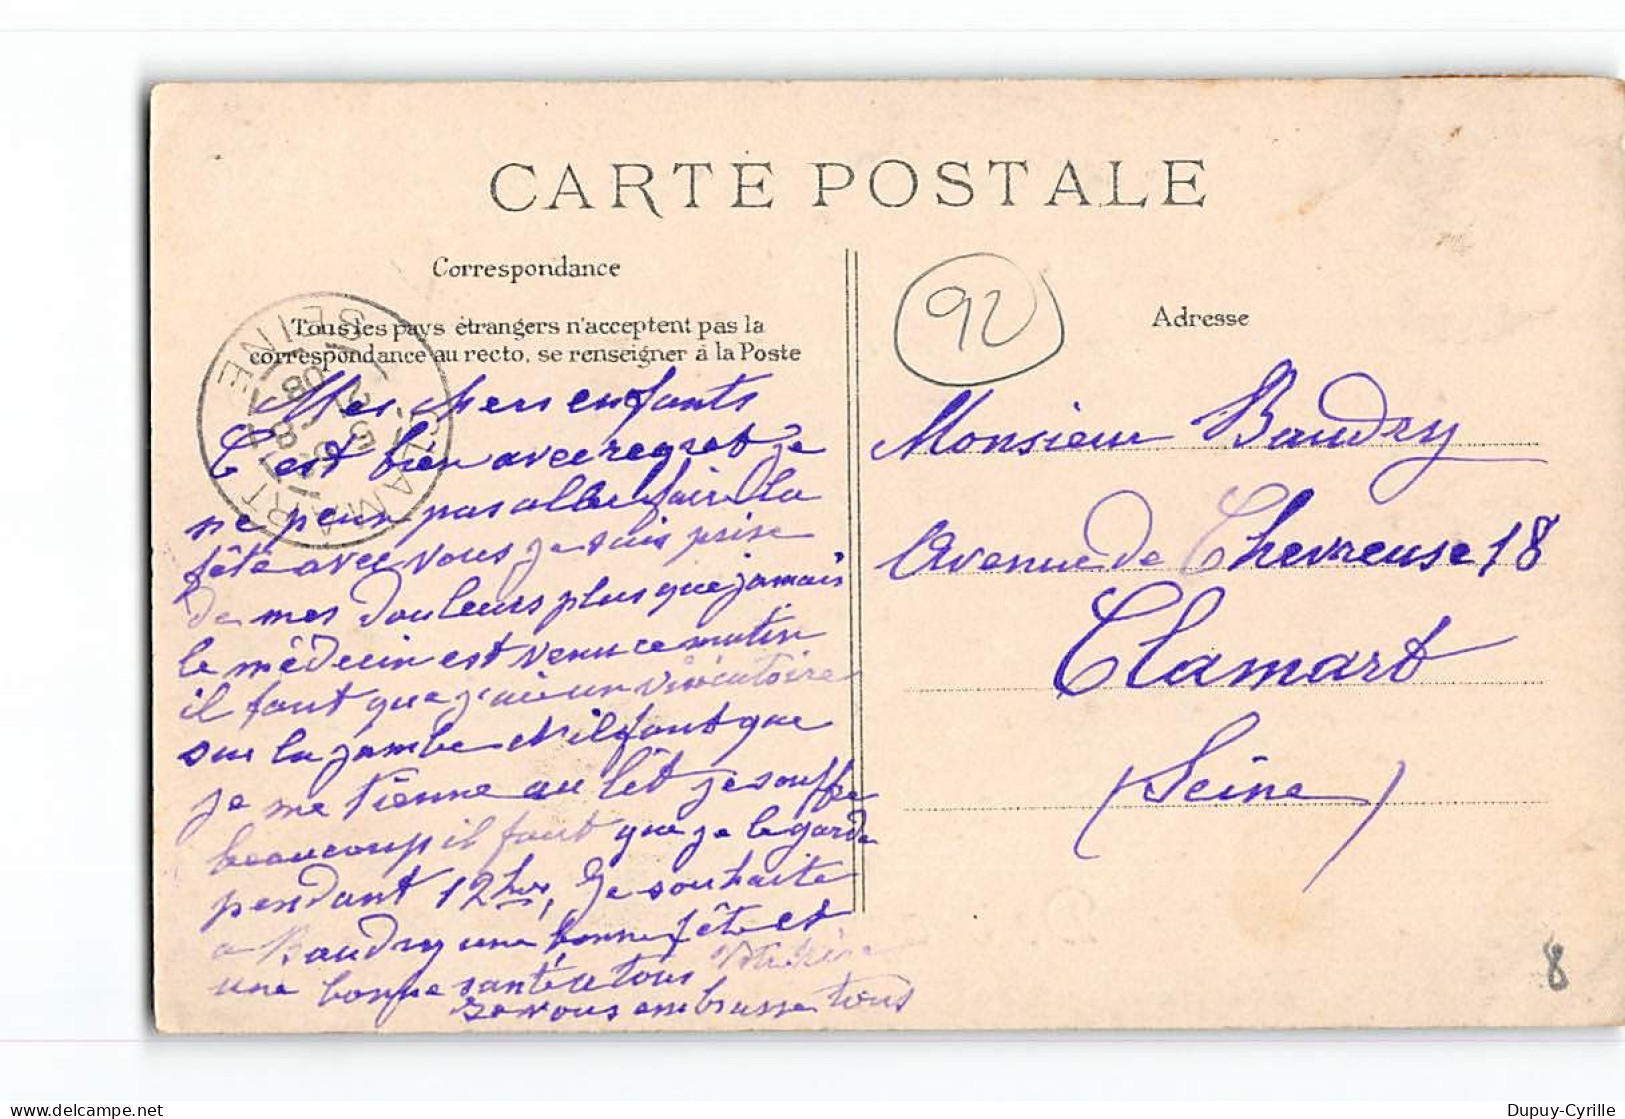 CARTE POSTALE
Correspondance
Tous les pays étrangers n'acceptent pas la
correspondance au recto, se renseigner à la Poste
Adresse
92
CLAMART
SEINE
Mes chers enfants
C'est bien avec regret je
ne peux pas aller fair la
fête avec vous je suis prise
de mes douleurs plus que jamais
le médecin est venu ce matin
il faut que j'aie un vésicatoire
sur la jambe et il faut que
je me tienne au lit je souffre
beaucoup il faut que je le garde
pendant 12 hrs, Je souhaite
a Baudry une bonne fête et
une bonne santé a tous Votre
Je vous embrasse tous
Monsieur Baudry
Avenue de Chevreuse 18
Clamart
(Seine)
8
Dupuy-Cyrille